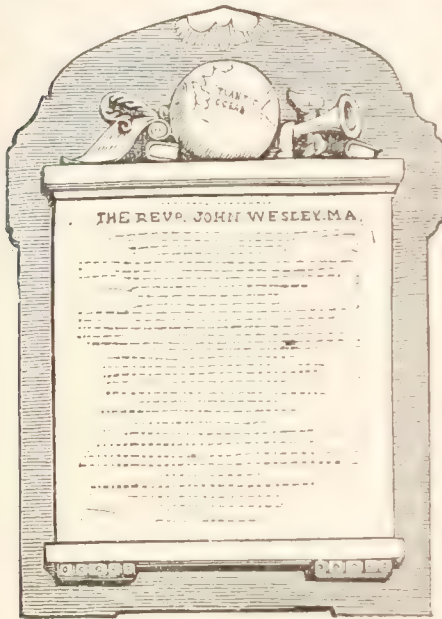 ATLANTIC
OCEAN
THE REVD. JOHN WESLEY. M A.